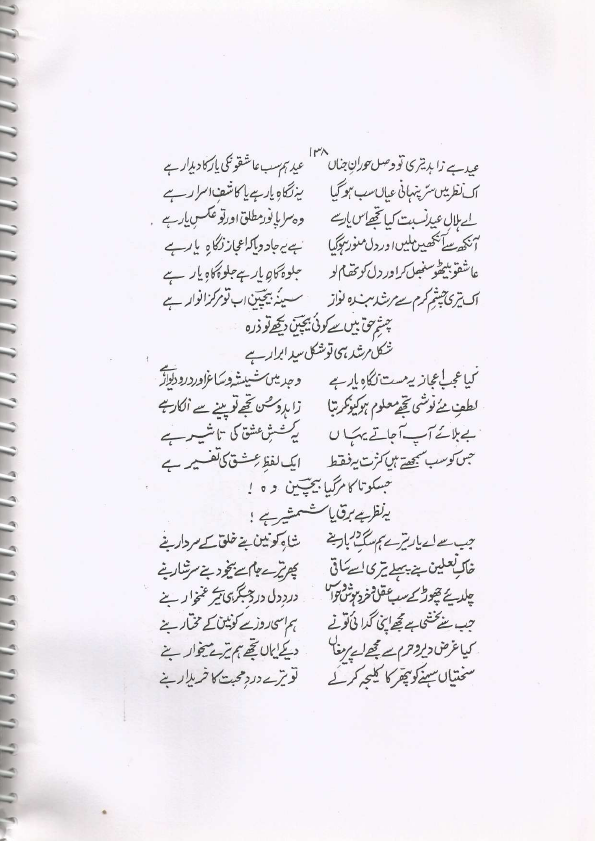 ۱۳۸
عید ہے زاہد تری تو وصل حوران جناں عید ہم سب عاشقونکی یار کا دیدار ہے
اک نظر میں سرّ پنہانی عیاں سب ہوگیا یہ نگاہ یار ہے یا کاشفِ اسرار ہے
اے ہلالِ عید نسبت کیا تجھے اس یار سے وہ سراپا نور مطلق اور تو عکس یار ہے
آنکھ سے آنکھیں ملیں اور دل منور ہوگیا ہے یہ جادو یا کہ اعجاز نگاہ یار ہے
عاشقو بیٹھو سنبھل کر اور دل کو تھام لو جلوہ گاہِ یار ہے جلوہ گاہ یار ہے
اک تری چشمِ کرم سے مرشد بندہ نواز سینۂ بیچین اب تو مرکز انوار ہے
چشمِ حق بیں سے کوئی بیچین دیکھے تو ذرہ
شکل مرشد ہی تو شکل سید ابرار ہے
کیا عجب اعجاز یہ مست نگاہ یار ہے وجد میں شیشہ و ساغر اور در و دیوار ہے
لطفِ مئے نوشی تجھے معلوم ہو کیونکر بتا زاہدوں تجھے تو پینے سے انکار ہے
بے بلائے آپ آجاتے یہاں یہ کشش عشق کی تاثیر ہے
جس کو سب سمجھتے ہیں کثرت یہ فقط ایک لفظِ عشق کی تفسیر ہے
جسکو تاکا مر گیا بیچین وہ !
یہ نظر ہے برق یا شمشیر ہے !
جب سے اے یار ترے ہم سگِ دربار بنے شاہِ کونین بنے خلق کے سردار بنے
خاکِ نعلین بنے پہلے تیری اے ساقی پھر ترے جام سے بیخود بنے سرشار بنے
چلدیئے چھوڑ کے سب عقل و خرد ہوش و حواس درد دل درد جگر ہی تیرے غمخوار بنے
جب سے بخشی ہے مجھے اپنی گدائی تو نے ہم اسی روز سے کونین کے مختار بنے
کیا غرض دیر و حرم سے مجھے اے پیر مغاں دیکے ایماں تجھے ہم ترے میخوار بنے
سختیاں سہنے کو پتھر کا کلیجہ کرلے تو ترے دردِ محبت کا خریدار بنے